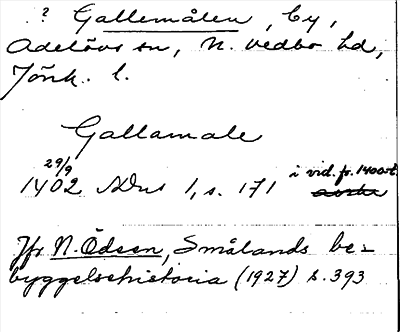 ? Gallemålen, by,
Adelövs sn, N. Vedbo hd,
Jönk. l.
Gallamale
29/9
1402 SDns 1, s. 171 i vid. fr. 1400-t.
Jfr N. Ödeen, Smålands be-
byggelsehistoria (1927) s. 393